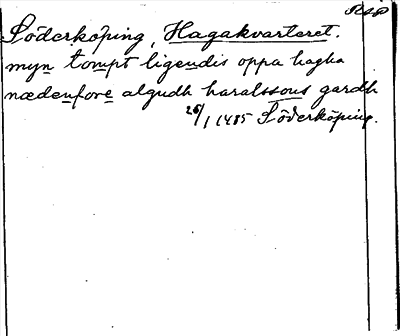 Söderköping, Hagakvarteret.
myn tompt ligendis oppa hagha
nædenfore algudh haralssons gardh
26/1 1485 Söderköping.